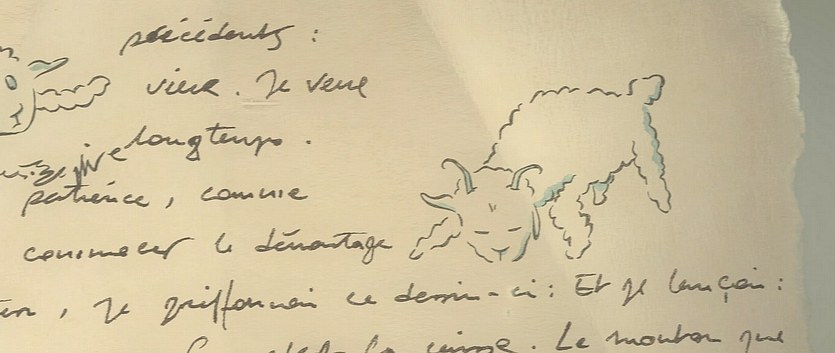 précédents :
vieux. Je veux
vive longtemps.
patience, comme
commencer le démontage
, je griffonnai ce dessin-ci : Et je lançai :
la caisse. Le mouton que